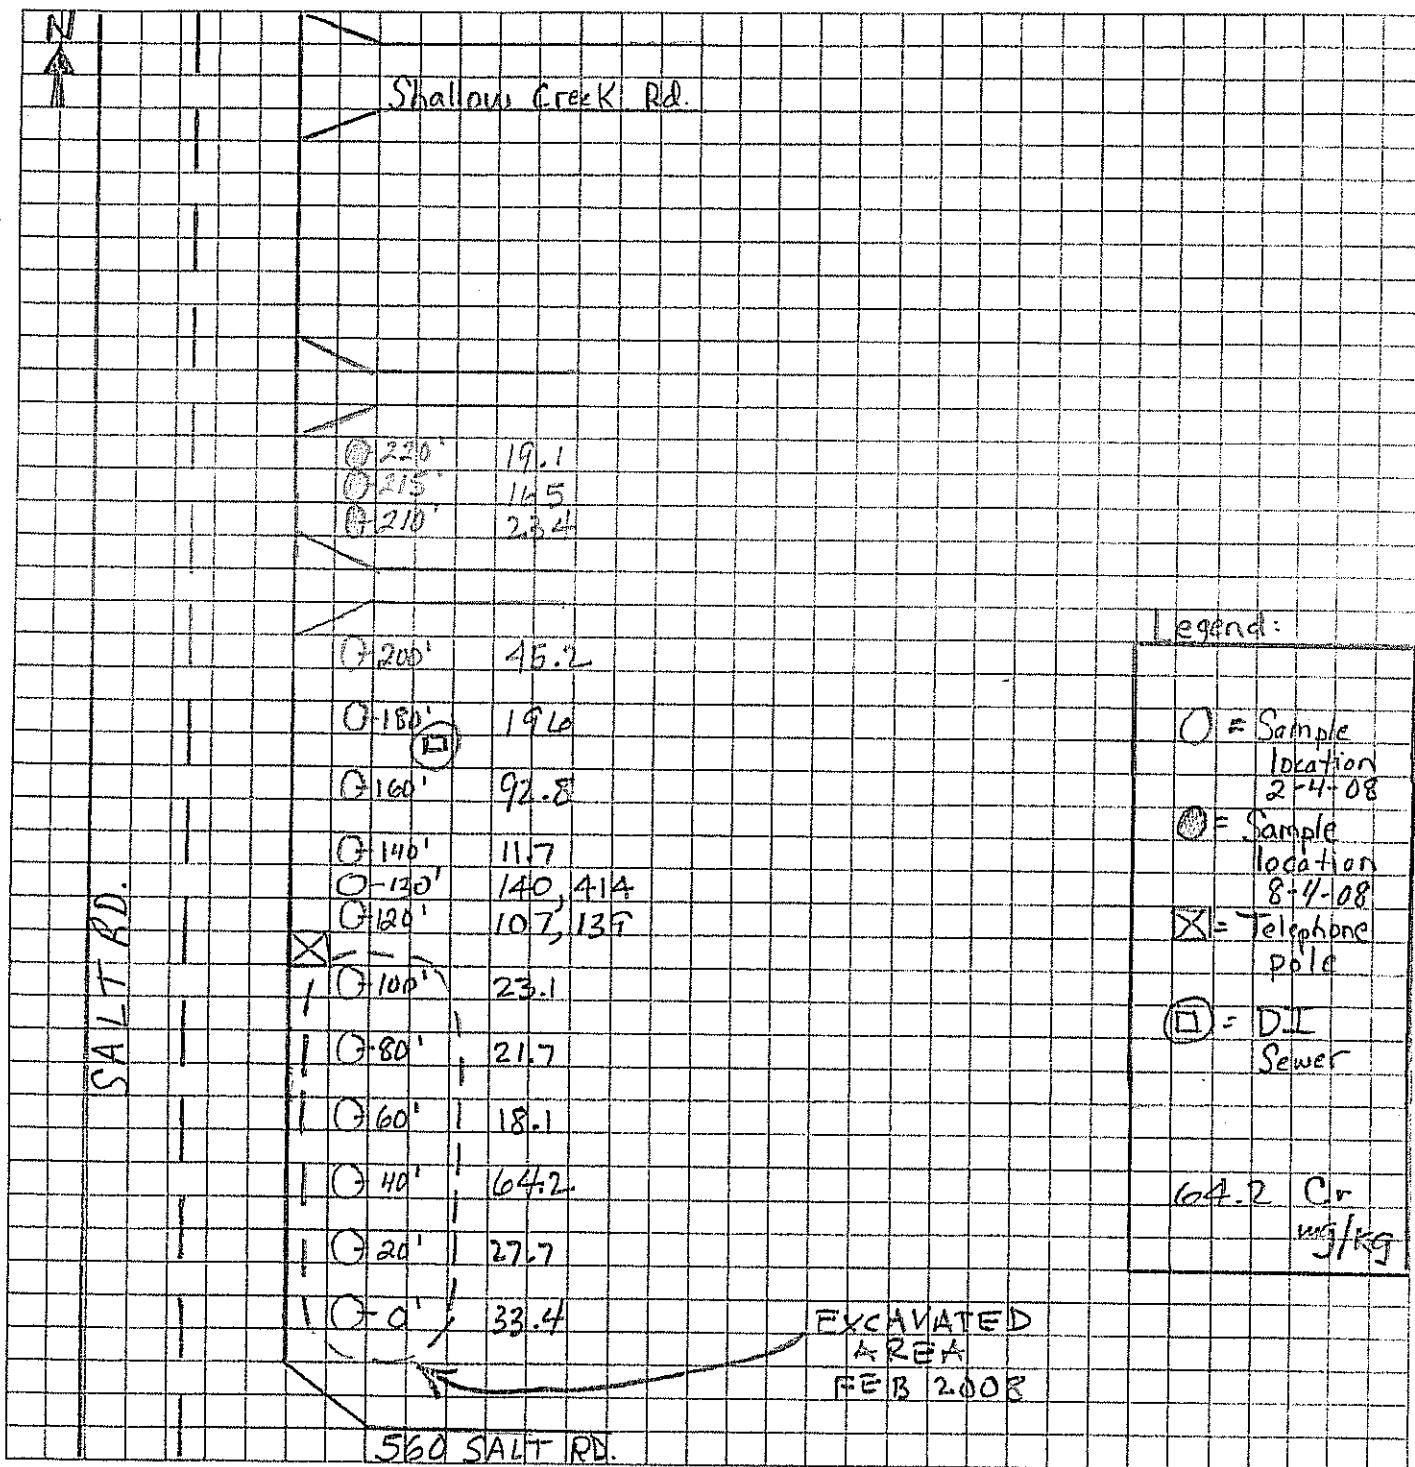 N
Shallow Creek Rd.
220' 19.1
215' 16.5
210' 23.4
200' 45.2
180' 196
160' 92.8
140' 11.7
130' 140, 414
120' 107, 139
100' 23.1
80' 21.7
60' 18.1
40' 64.2
20' 27.7
0' 33.4
SALT RD.
EXCAVATED
AREA
FEB 2008
560 SALT RD.
Legend:
= Sample
location
2-4-08
= Sample
location
8-4-08
= Telephone
pole
= DI
Sewer
64.2 Cr
mg/kg